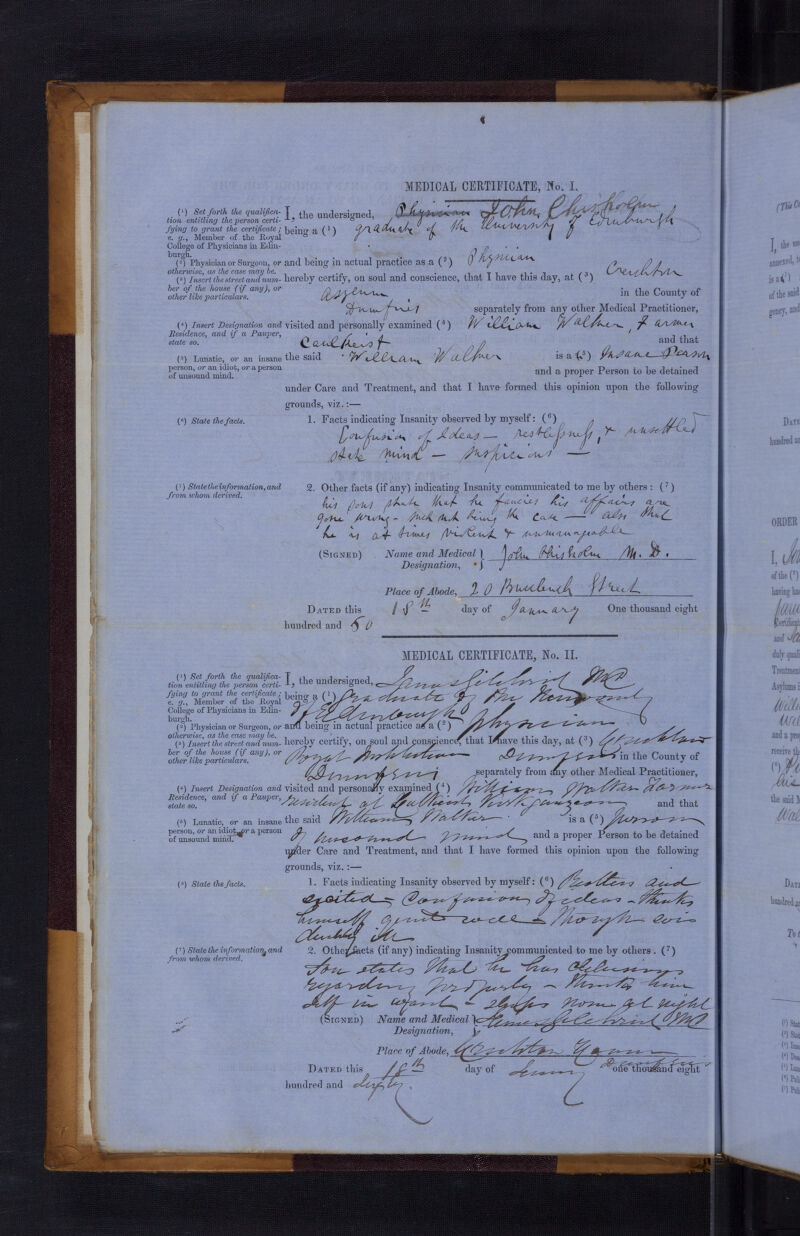 MEDICAL CERTIFICATE, No. I.
(¹) Set forth the qualifica-
tion entitling the person certi-
fying to grant the certificate;
e. g., Member of the Royal
College of Physicians in Edin-
burgh.
(²) Physician or Surgeon, or
otherwise, as the case may be.
(³) Insert the street and num-
ber of the house (if any), or
other like particulars.
(⁴) Insert Designation and
Residence, and if a Pauper,
state so.
(⁵) Lunatic, or an insane
person, or an idiot, or a person
of unsound mind.
(⁶) State the facts.
(⁷) State the information, and
from whom derived.
I, the undersigned, Physician John Chisholm
being a (¹) graduate of the University of Edinburgh
and being in actual practice as a (²) Physician
hereby certify, on soul and conscience, that I have this day, at (³) Crichton
Asylum in the County of
Dumfries separately from any other Medical Practitioner,
visited and personally examined (⁴) William Walker, Farmer
and that
the said William Walker is a (⁵) Insane Person
and a proper Person to be detained
under Care and Treatment, and that I have formed this opinion upon the following
grounds, viz. :—
1. Facts indicating Insanity observed by myself: (⁶)
Confusion of Ideas — restlessness, & unsettled
state mind — suspicious —
2. Other facts (if any) indicating Insanity communicated to me by others : (⁷)
his sons state that he fancies his affairs are
gone wrong - such not being the case — also that
he is at times violent & unmanageable
(SIGNED) Name and Medical Designation, John Chisholm M. D.
Place of Abode, 20 Buccleuch Street
DATED this 18th day of January One thousand eight
hundred and 60
MEDICAL CERTIFICATE, No. II.
(¹) Set forth the qualifica-
tion entitling the person certi-
fying to grant the certificate;
e. g., Member of the Royal
College of Physicians in Edin-
burgh.
(²) Physician or Surgeon, or
otherwise, as the case may be.
(³) Insert the street and num-
ber of the house (if any), or
other like particulars.
(⁴) Insert Designation and
Residence, and if a Pauper,
state so.
(⁵) Lunatic, or an insane
person, or an idiot, or a person
of unsound mind.
(⁶) State the facts.
(⁷) State the information, and
from whom derived.
I, the undersigned, James Gilchrist MD
being a (¹) Graduate of the University
of Edinburgh
and being in actual practice as a (²) physician
hereby certify, on soul and conscience, that I have this day, at (³) Crichton
Royal Institution Dumfries in the County of
Dumfries separately from any other Medical Practitioner,
visited and personally examined (⁴) William Walker Farmer
resident at Kirkgunzeon and that
the said William Walker is a (⁵) person
of unsound mind and a proper Person to be detained
under Care and Treatment, and that I have formed this opinion upon the following
grounds, viz. :—
1. Facts indicating Insanity observed by myself: (⁶) Restless and
excited - Confusion of ideas - thinks
himself quite well - though evi
dently ill
2. Other facts (if any) indicating Insanity communicated to me by others. (⁷)
Son states that he has delusions
regarding property - thinks him
self in want - sleeps none at night
(SIGNED) Name and Medical Designation, James Gilchrist MD
Place of Abode, Crichton House
Dumfries
DATED this 18th day of January one thousand eight
hundred and Sixty.
ORDER